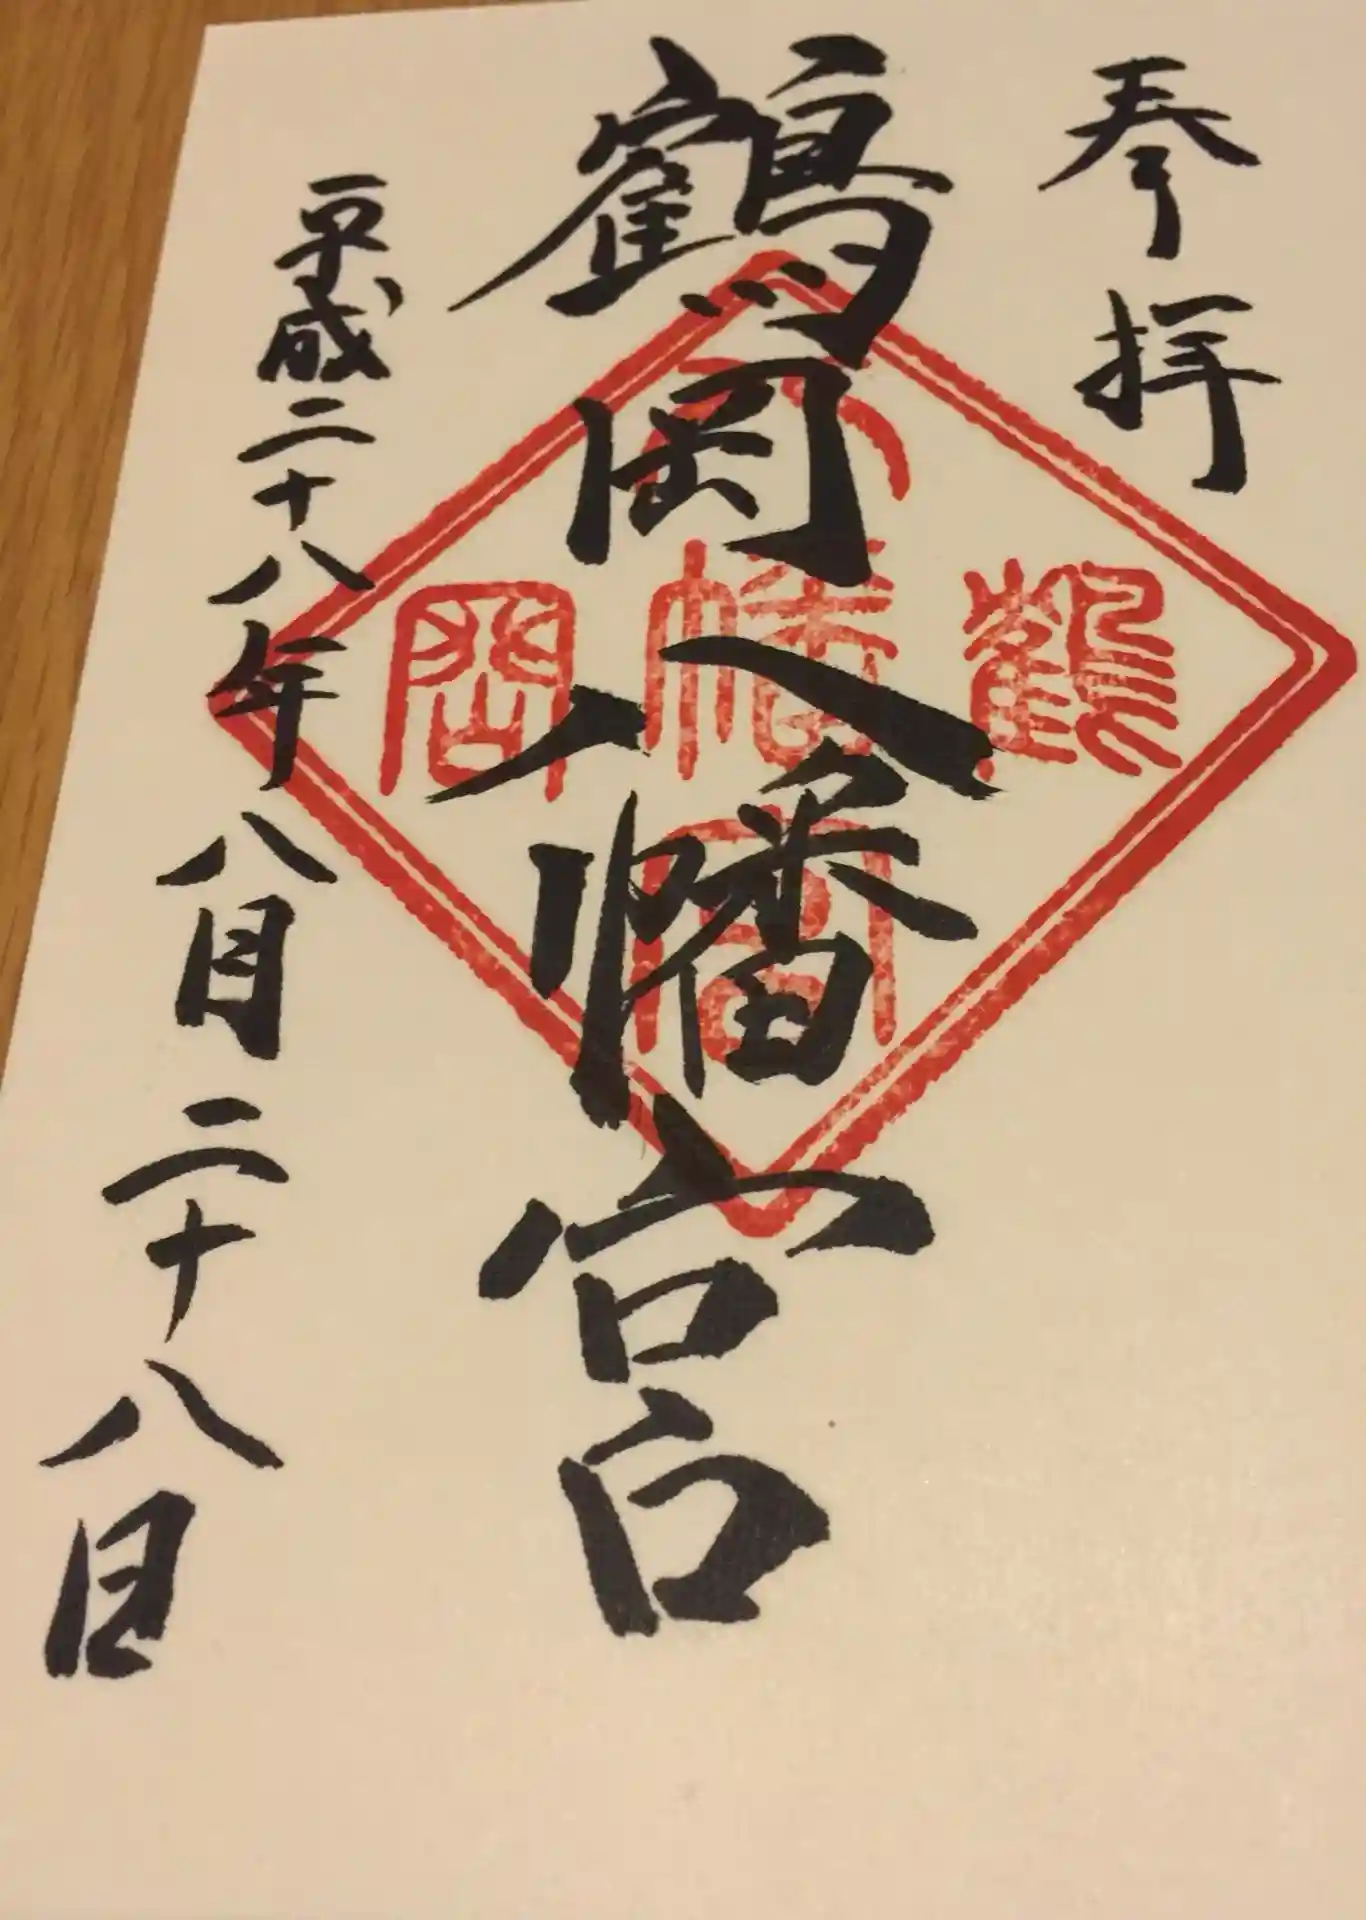 奉拝
鶴岡八幡宮
平成二十八年八月二十八日
鶴
八幡宮
岡